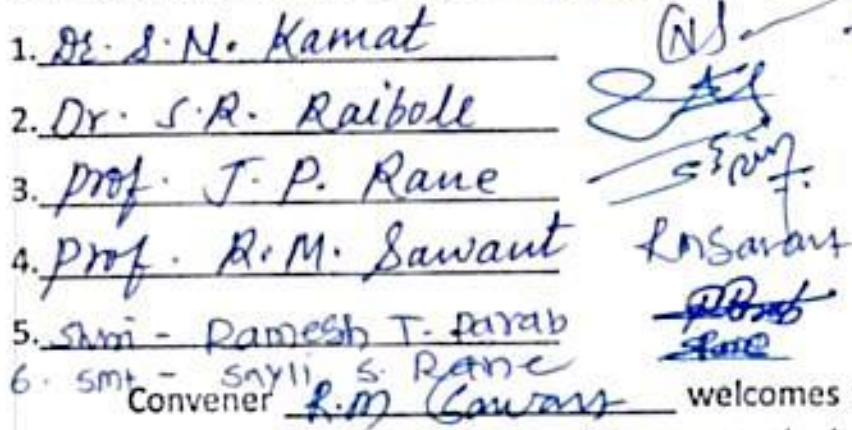 1. Dr. S. N. Kamat
2. Dr. S.R. Raibole
3. Prof. J. P. Rane
4. Prof. R. M. Sawant RMSavant
5. Shri - Ramesh T. Parab
6. Smt - Sayli S. Rane
Convener R.M Sawant welcomes